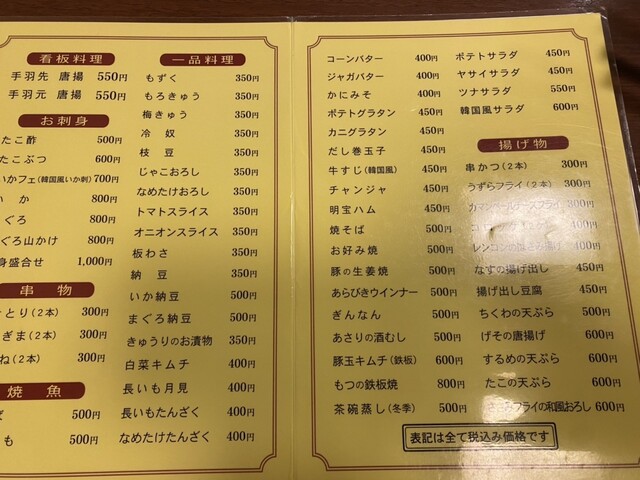 看板料理
手羽先 唐揚 550円
手羽元 唐揚 550円
お刺身
たこ酢 500円
たこぶつ 600円
いかフェ(韓国風いか刺) 700円
いか 800円
ぐろ 800円
ぐろ山かけ 800円
身盛合せ 1,000円
串物
とり(2本) 300円
ぎま(2本) 300円
ね(2本) 300円
焼魚
500円
も 500円
一品料理
もずく 350円
もろきゅう 350円
梅きゅう 350円
冷奴 350円
枝豆 350円
じゃこおろし 350円
なめけたおろし 350円
トマトスライス 350円
オニオンスライス 350円
板わさ 350円
納豆 350円
いか納豆 500円
まぐろ納豆 500円
きゅうりのお漬物 350円
白菜キムチ 400円
長いも月見 400円
長いもたんざく 400円
なめたけたんざく 400円
コーンバター 400円
ジャガバター 400円
かにみそ 400円
ポテトグラタン 450円
カニグラタン 450円
だし巻玉子 450円
牛すじ(韓国風) 450円
チャンジャ 450円
明宝ハム 450円
焼そば 500円
お好み焼 500円
豚の生姜焼 500円
あらびきウインナー 500円
ぎんなん 500円
あさりの酒むし 500円
豚玉キムチ(鉄板) 600円
もつの鉄板焼 800円
茶碗蒸し(冬季) 500円
ポテトサラダ 450円
ヤサイサラダ 450円
ツナサラダ 550円
韓国風サラダ 600円
揚げ物
串かつ(2本) 300円
うずらフライ(2本) 300円
カマンベールチーズフライ 300円
400円
レンコンのはさみ揚げ 400円
なすの揚げ出し 450円
揚げ出し豆腐 450円
ちくわの天ぷら 500円
げその唐揚げ 600円
するめの天ぷら 600円
たこの天ぷら 600円
ささみフライの和風おろし 600円
表記は全て税込み価格です